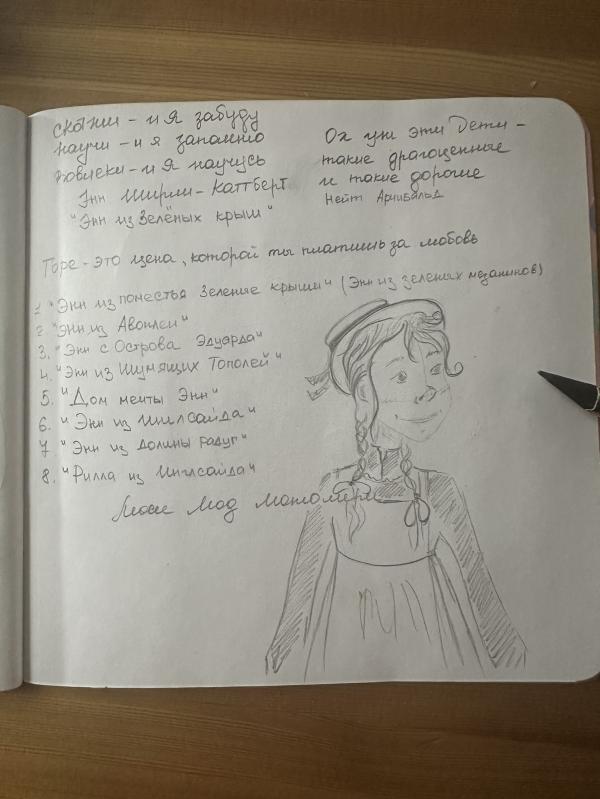 скажи - и я забуду
научи - и я запомню
вовлеки - и я научусь
Энн Ширли - Катберт
"Энн из Зелёных крыш"
Ох уж эти Дети -
такие драгоценные
и такие дорогие
Нейт Арчибальд
Горе - это цена, которой ты платишь за любовь
1 "Энн из поместья Зеленые крыши" (Энн из зеленых мезонинов)
2 "Энн из Авонлеи"
3. "Энн с Острова Эдуарда"
4. "Энн из Шумящих Тополей"
5. "Дом мечты Энн"
6. "Энн из Инглсайда"
7 "Энн из Долины Радуг"
8. "Рилла из Инглсайда"
Люси Мод Монтгомери